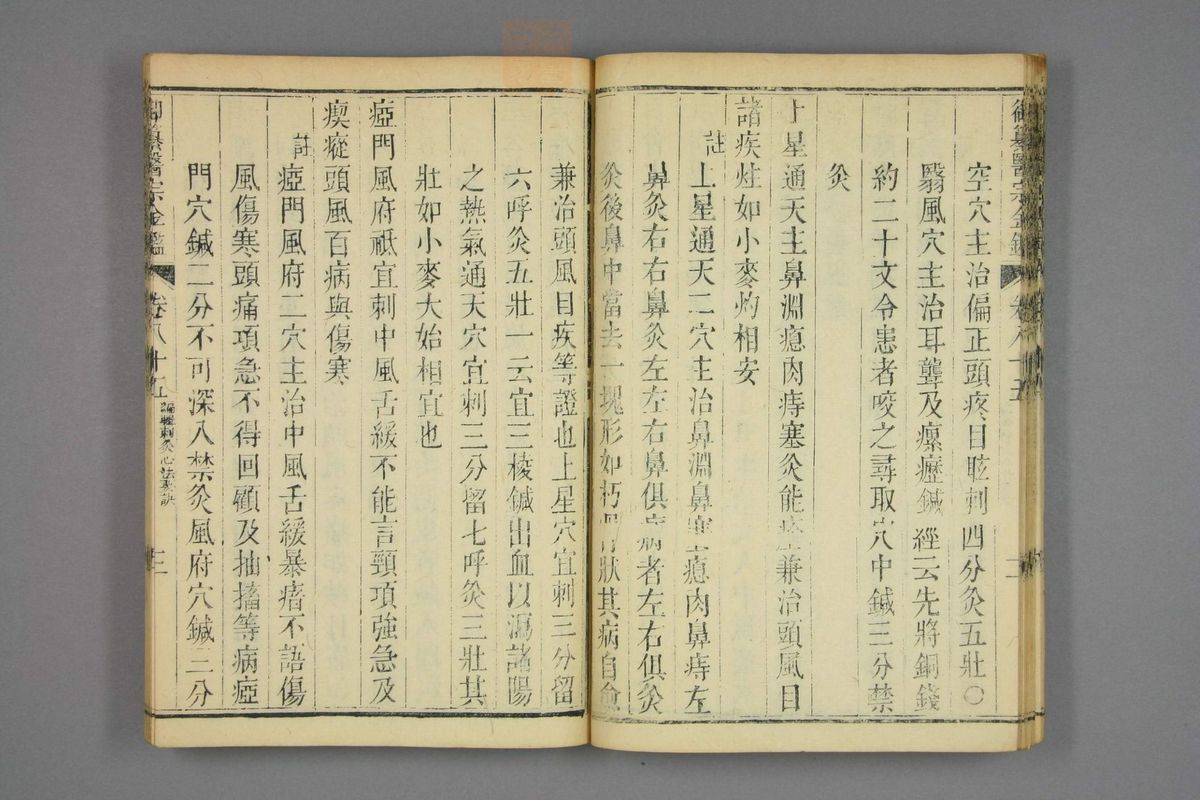 空穴主治偏正頭疼目眩刺四分灸五壯〇
翳風穴主治耳聾及瘰癧鍼經云先將銅錢
約二十文令患者咬之尋取穴中鍼三分禁
灸
上星通天主鼻淵瘜肉痔塞灸能兼治頭風目
諸疾炷如小麥灼相安
註
上星通天二穴主治鼻淵鼻塞瘜肉鼻痔左
鼻灸右右鼻灸左左右鼻俱病者左右俱灸
灸後鼻中當去一塊形如朽骨狀其病自愈
兼治頭風目疾等證也上星穴宜刺三分留
六呼灸五壯一云宜三棱鍼出血以瀉諸陽
之熱氣通天穴宜刺三分留七呼灸三壯其
壯如小麥大始相宜也
瘂門風府祗宜刺中風舌緩不能言頸項強急及
瘈瘲頭風百病與傷寒
註
瘂門風府二穴主治中風舌緩暴瘖不語傷
風傷寒頭痛項急不得回顧及抽搐等病瘂
門穴鍼二分不可深入禁灸風府穴鍼二分
御纂醫宗金鑑
卷八十五
編輯刺灸心法要訣
三
御纂醫宗金鑑
卷八十五